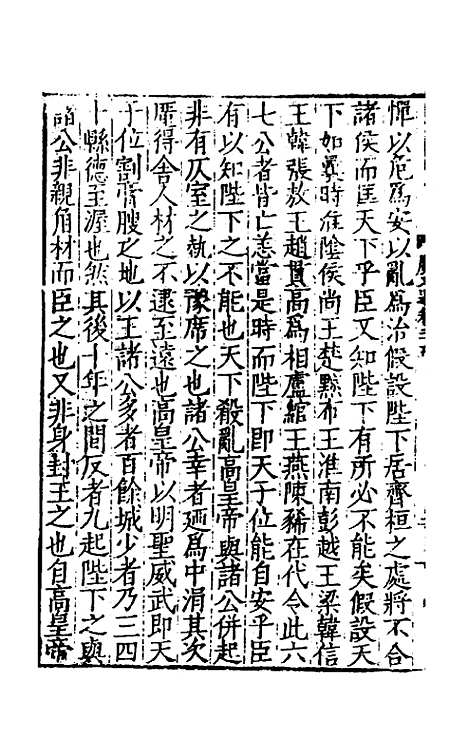 憚以危爲安以亂爲治假設陛下居齊桓之處將不合
諸侯而匡天下乎臣又知陛下有所必不能矣假設天
下如曩時淮陰侯尚王楚黥布王淮南彭越王梁韓信
王韓張敖王趙貫高爲相盧綰王燕陳豨在代令此六
七公者皆亡恙當是時而陛下即天子位能自安乎臣
有以知陛下之不能也天下殽亂高皇帝與諸公併起
非有仄室之埶以豫席之也諸公幸者廼爲中涓其次
厪得舍人材之不逮至遠也高皇帝以明聖威武即天
子位割膏腴之地以王諸公多者百餘城少者乃三四
十縣德至渥也然其後十年之間反者九起陛下之與
諸公非親角材而臣之也又非身封王之也自高皇帝